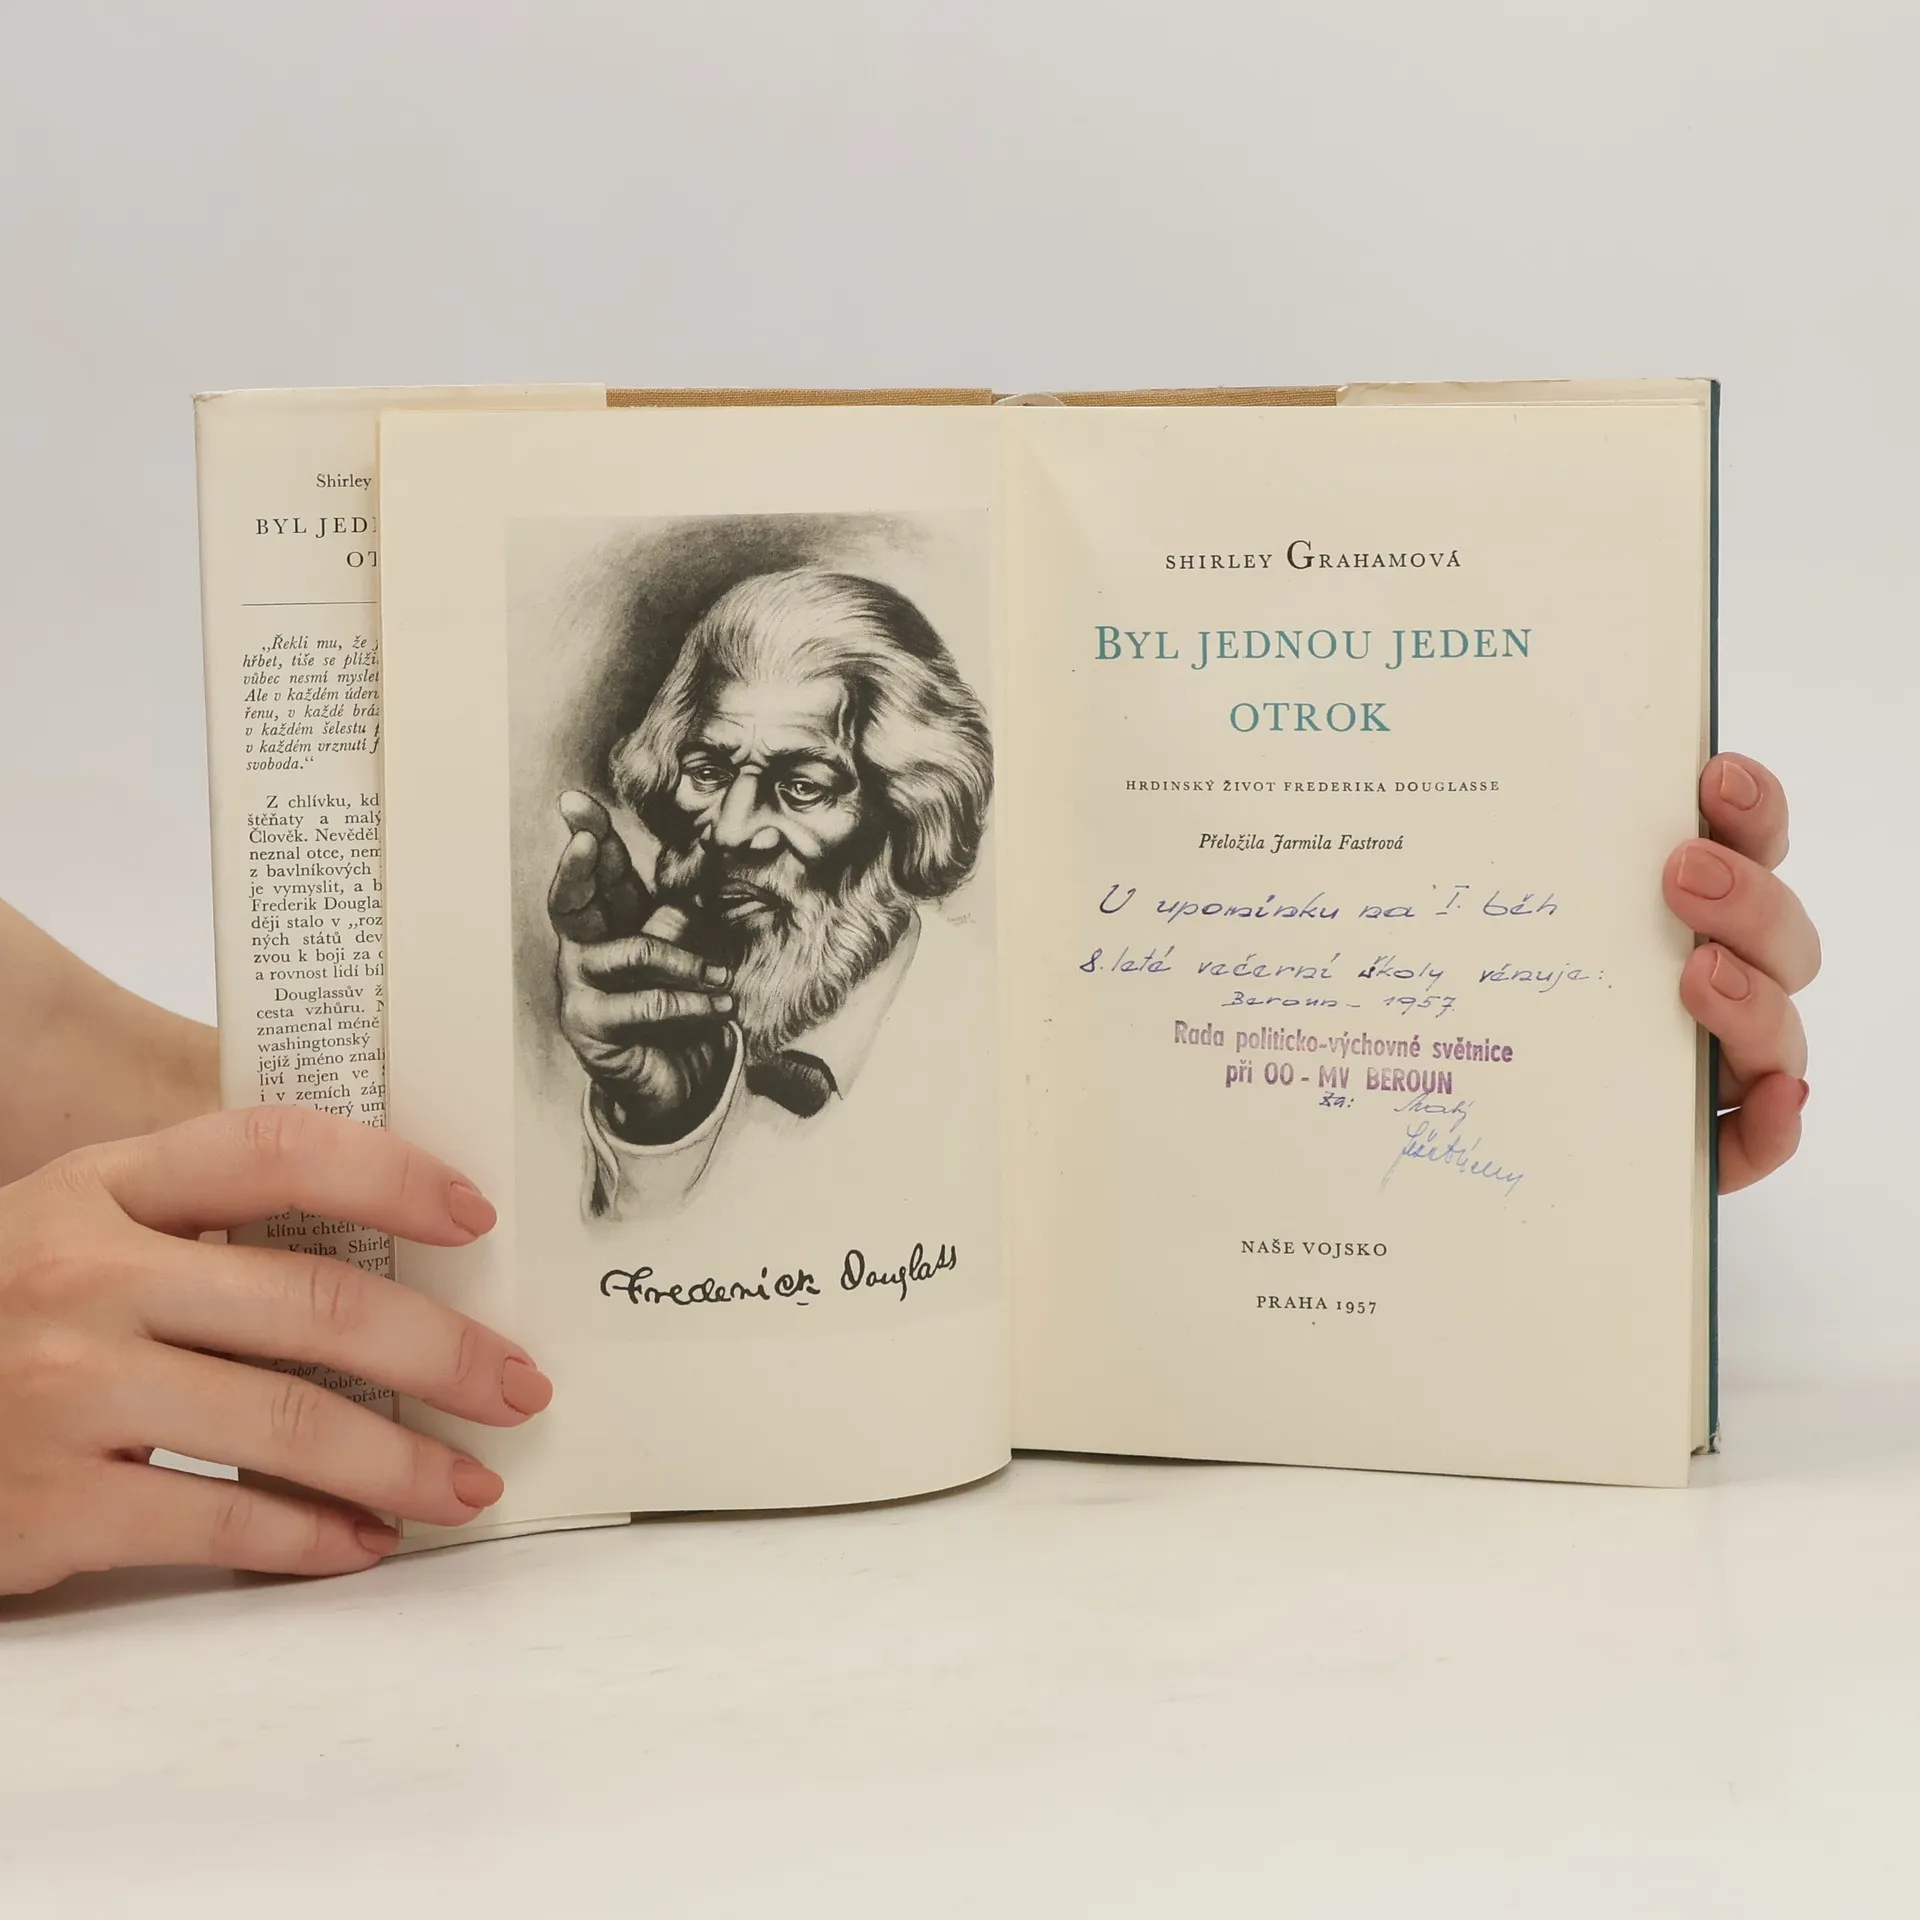 Shirley
BYL JED
OT
„Řekli mu, že
hřbet, tiše se plíži
vůbec nesmí myslet
Ale v každém úder
řenu, v každé bráz
v každém šelestu
v každém vrznutí
svoboda."
Z chlívku, kd
štěňaty a malý
Člověk. Nevěděl
neznal otce, nem
z bavlníkových
je vymyslit, a b
Frederik Dougla
ději stalo v „roz
ných států dev
zvou k boji za
a rovnost lidí bíl
Douglassův ž
cesta vzhůru. N
znamenal méně
washingtonský
jejíž jméno znali
liví nejen ve
i v zemích záp
který um
klínu chtěli
Kniha Shirle
vypr
dobře.
Frederick Douglass
SHIRLEY GRAHAMOVÁ
BYL JEDNOU JEDEN
OTROK
HRDINSKÝ ŽIVOT FREDERIKA DOUGLASSE
Přeložila Jarmila Fastrová
U upomínku na I. běh
8.leté večerní školy věnuje:
Beroun - 1957.
Rada politicko-výchovné světnice
při OO - MV BEROUN
za:
NAŠE VOJSKO
PRAHA 1957